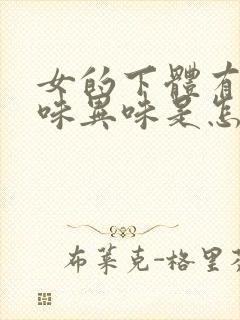 女的下體有
味異味是怎
布萊克-格里芬